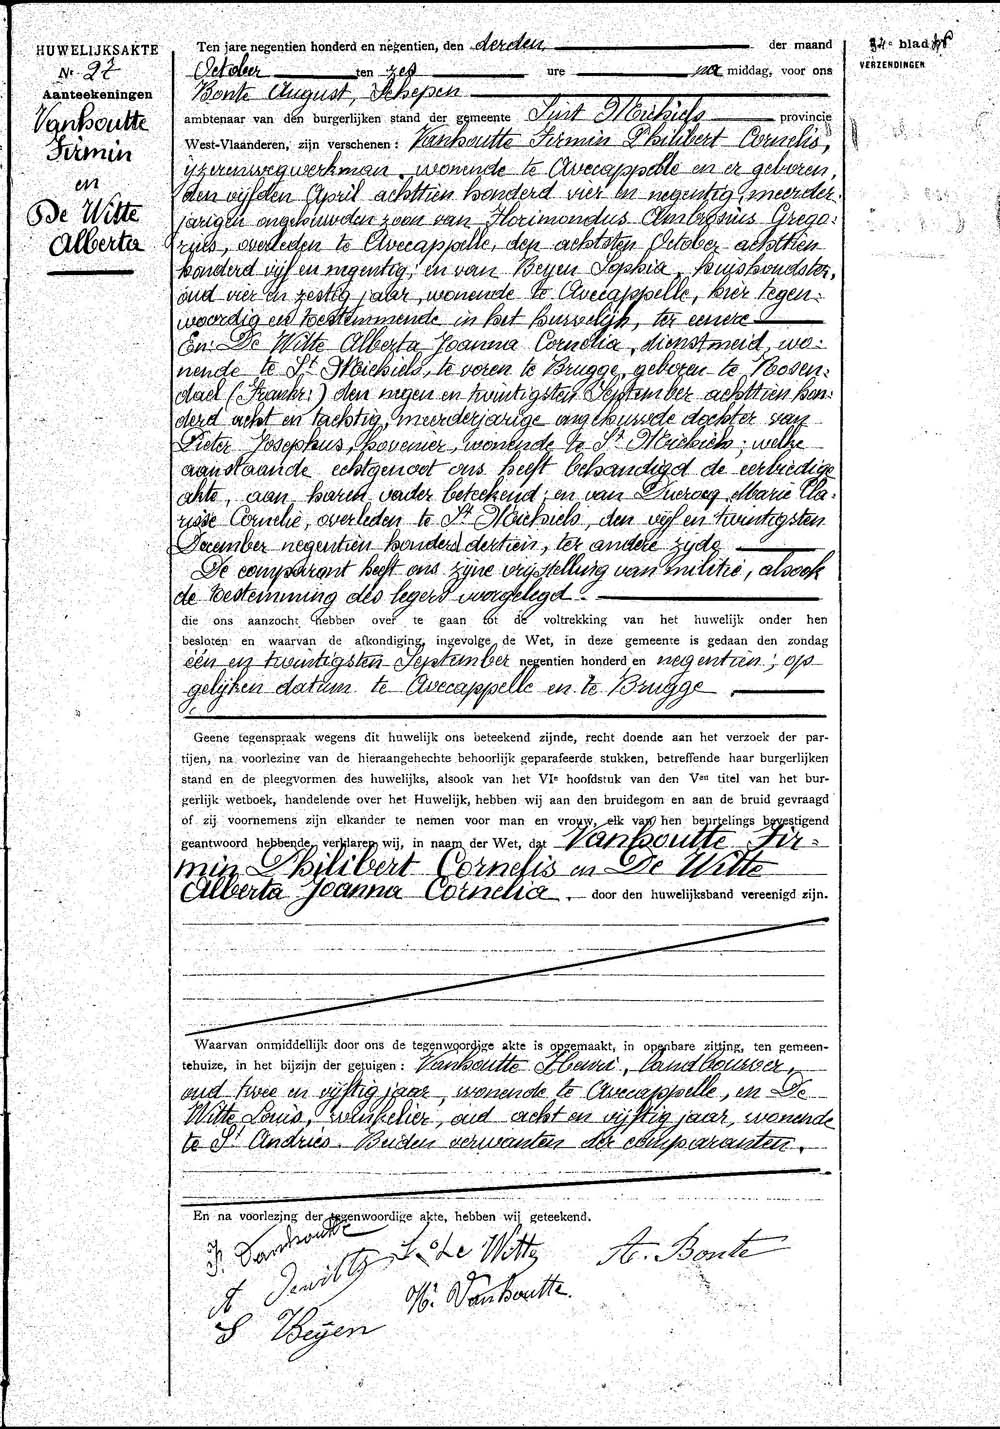 HUWELIJKSAKTE
Nr 27
Aanteekeningen
Vanhoutte
Firmin
en
De Witte
Alberta
Ten jare negentien honderd en negentien, den derden der maand
October ten zes ure na middag, voor ons
Bonte August, Schepen
ambtenaar van den burgerlijken stand der gemeente Sint Michiels provincie
West-Vlaanderen, zijn verschenen: Vanhoutte Firmin Philibert Cornelis,
ijzerenwegwerkman, wonende te Avecappelle en er geboren,
den vijfden April achttien honderd vier en negentig, meerder-
jarigen ongehuwden zoon van Florimondus Ambrosius Grego-
rius, overleden te Avecappelle, den achtsten October achttien
honderd vijf en negentig; en van Beyen Sophia, huishoudster,
oud vier en zestig jaar, wonende te Avecappelle, hier tegen-
woordig en toestemmende in het huwelijk, ter eenere
En: De Witte Alberta Joanna Cornelia, dienstmeid, wo-
nende te St Michiels, te voren te Brugge, geboren te Rosen-
dael (Frankr:) den negen en twintigsten September achttien hon-
derd acht en tachtig, meerderjarige ongehuwde dochter van
Pieter Josephus, hovenier, wonende te St Michiels; welke
aanstaande echtgenoot ons heeft behandigd de eerbiedige
akte, aan haren vader beteekend; en van Ducrocq Marie Cla-
risse Cornelie, overleden te St Michiels, den vijf en twintigsten
December negentien honderd dertien, ter andere zijde
De comparant heeft ons zijne vrijstelling van militie, alsook
de toestemming des legers voorgelegd.
die ons aanzocht hebben over te gaan tot de voltrekking van het huwelijk onder hen
besloten en waarvan de afkondiging, ingevolge de Wet, in deze gemeente is gedaan den zondag
één en twintigsten September negentien honderd en negentien; op
gelijken datum te Avecappelle en te Brugge
Geene tegenspraak wegens dit huwelijk ons beteekend zijnde, recht doende aan het verzoek der par-
tijen, na voorlezing van de hieraangehechte behoorlijk geparafeerde stukken, betreffende haar burgerlijken
stand en de pleegvormen des huwelijks, alsook van het VIe hoofdstuk van den Ven titel van het bur-
gerlijk wetboek, handelende over het Huwelijk, hebben wij aan den bruidegom en aan de bruid gevraagd
of zij voornemens zijn elkander te nemen voor man en vrouw, elk van hen beurtelings bevestigend
geantwoord hebbende, verklaren wij, in naam der Wet, dat Vanhoutte Fir-
min Philibert Cornelis en De Witte
Alberta Joanna Cornelia door den huwelijksband vereenigd zijn.
Waarvan onmiddelijk door ons de tegenwoordige akte is opgemaakt, in openbare zitting, ten gemeen-
tehuize, in het bijzijn der getuigen: Vanhoutte Henri, landbouwer,
oud twee en vijftig jaar, wonende te Avecappelle, en De
Witte Louis, winkelier, oud acht en vijftig jaar, wonende
te St Andries. Beiden verwanten der comparanten.
En na voorlezing der tegenwoordige akte, hebben wij geteekend.
F. Vanhoutte
A Dewitte
L. De Witte
A. Bonte
H. Vanhoutte
S Beyen
blad
VERZENDINGEN